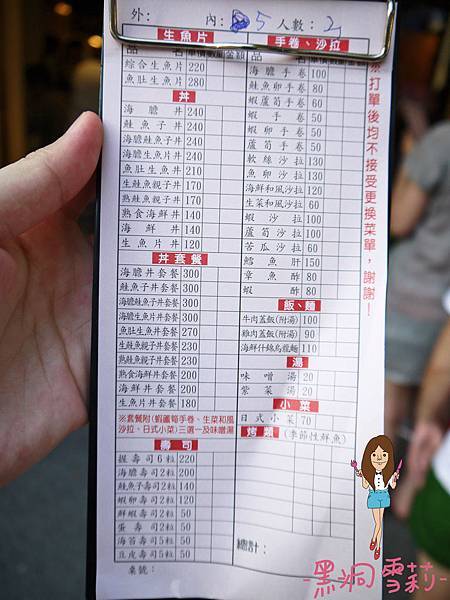 外： 內： 5 人數： 2
生魚片
品名 單價 數量 金額
綜合生魚片 220
魚肚生魚片 280
丼
海膽丼 240
鮭魚子丼 240
海膽鮭魚子丼 240
海膽生魚片丼 240
魚肚生魚丼 210
生鮭魚親子丼 170
熟鮭魚親子丼 170
熟食海鮮丼 140
海鮮丼 140
生魚片丼 120
丼套餐
海膽丼套餐 300
鮭魚子丼套餐 300
海膽鮭魚子丼套餐 300
海膽生魚片丼套餐 300
魚肚生魚丼套餐 270
生鮭魚親子丼套餐 230
熟鮭魚親子丼套餐 230
熟食海鮮丼套餐 200
海鮮丼套餐 200
生魚片丼套餐 180
※套餐附(蝦蘆筍手卷、生菜和風
沙拉、日式小菜)三選一及味噌湯
壽司
握壽司6粒 220
海膽壽司2粒 200
鮭魚子壽司2粒 140
蝦卵壽司2粒 120
鮮蝦壽司2粒 50
蛋壽司2粒 50
海苔壽司5粒 50
豆皮壽司5粒 50
桌號：
手卷、沙拉
品名 單價 數量 金額
海膽手卷 100
鮭魚卵手卷 80
蝦蘆筍手卷 60
蝦手卷 50
蝦卵手卷 50
蘆筍手卷 50
軟絲沙拉 130
魚卵沙拉 130
海鮮和風沙拉 120
生菜和風沙拉 60
蝦沙拉 100
蘆筍沙拉 100
苦瓜沙拉 60
鱈魚肝 150
章魚酢 80
蝦酢 80
飯、麵
牛肉蓋飯(附湯) 100
雞肉蓋飯(附湯) 90
海鮮什錦烏龍麵 110
湯
味噌湯 20
紫菜湯 20
小菜
日式小菜 70
烤類 (季節性鮮魚)
總計：
打單後均不接受更換菜單，謝謝！
-黑洞雪莉-